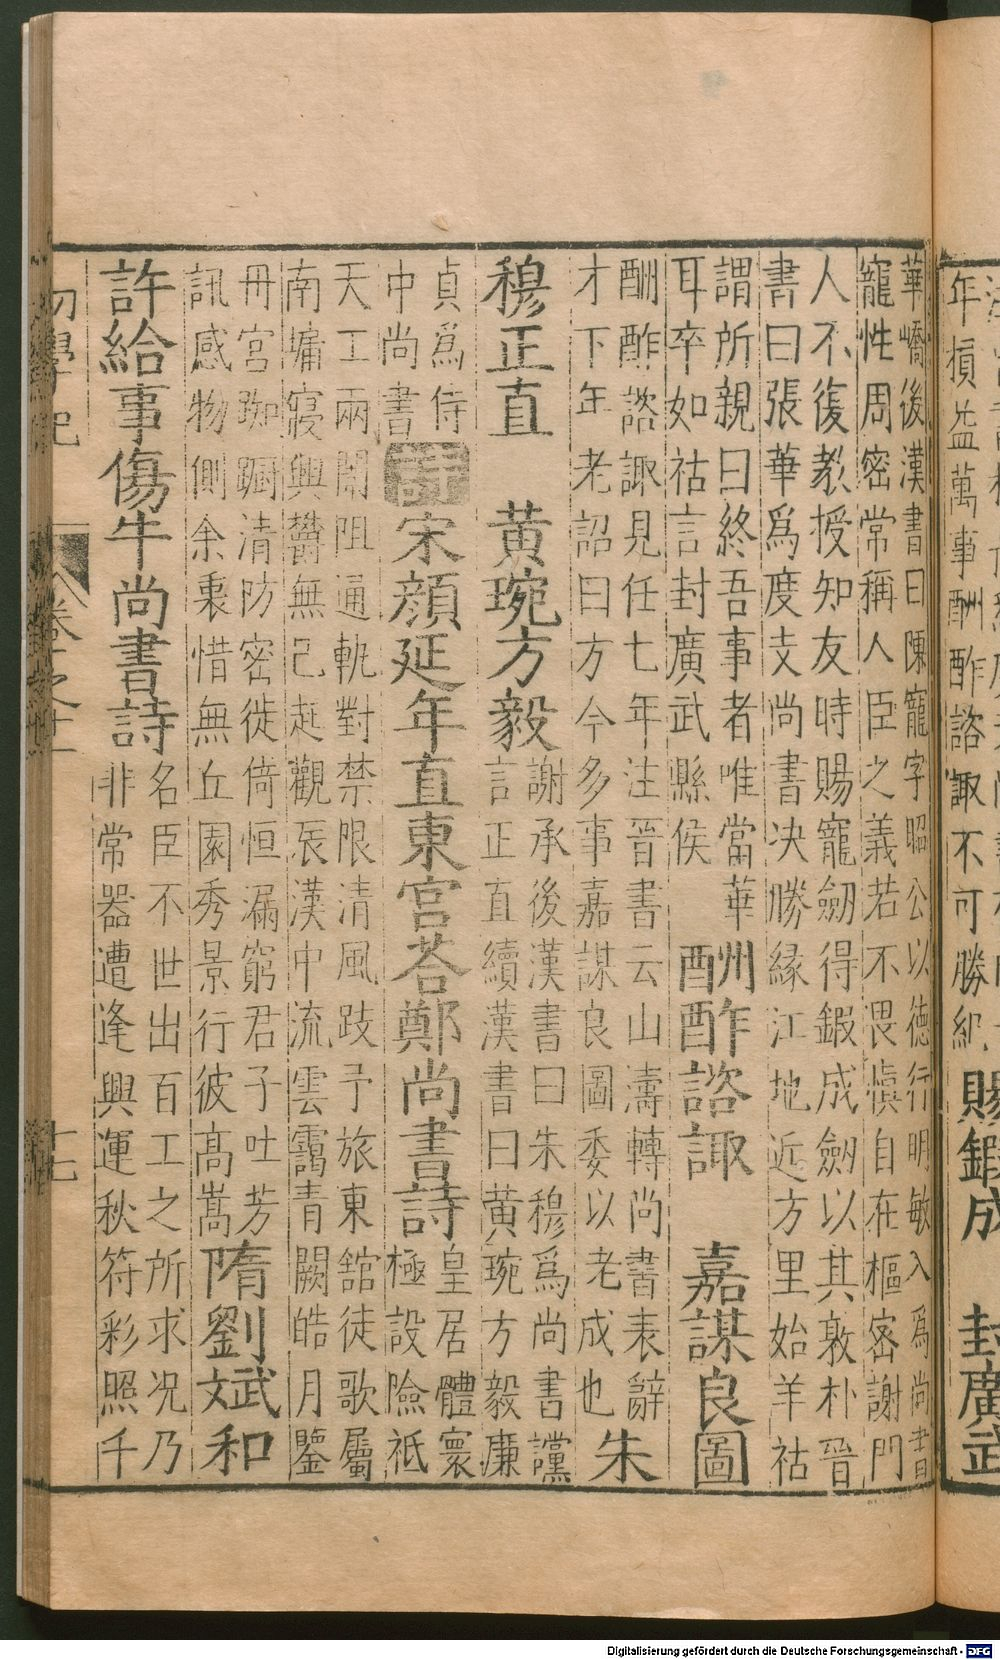 華嶠後漢書曰陳寵字昭公以徳行明敏入爲尚書
寵性周密常稱人臣之義若不畏愼自在樞密謝門
人不復教授知友時賜寵劒得鍜成劒以其敦朴晉
書曰張華爲度支尚書决勝縁江地近方里始羊祜
謂所親曰終吾事者唯當華
耳卒如祜言封廣武縣侯
酬酢諮諏 嘉謀良圖
酬酢諮諏見任七年注晉書云山濤轉尚書表辭
才下年老詔曰方今多事嘉謀良圖委以老成也
朱
穆正直 黄琬方毅
謝承後漢書曰朱穆爲尚書讜
言正直續漢書曰黄琬方毅廉
貞爲侍
中尚書
詩
宋顔延年直東宮荅鄭尚書詩
皇居體寰
極設險祗
天工兩闈阻通軌對禁限清風跂予旅東舘徒歌屬
南墉寢興鬱無已起觀辰漢中流雲靄青闕皓月鑒
丹宮踟蹰清防密徙倚恒漏窮君子吐芳
訊感物惻余衷惜無丘園秀景行彼髙嵩
隋劉斌和
許給事傷牛尚書詩
名臣不世出百工之所求况乃
非常器遭逢興運秋符彩照千
初學記
卷之十一
十七
年損益萬事酬酢諮諏不可勝紀
賜鍜成 封廣武
Digitalisierung gefördert durch die Deutsche Forschungsgemeinschaft - DFG